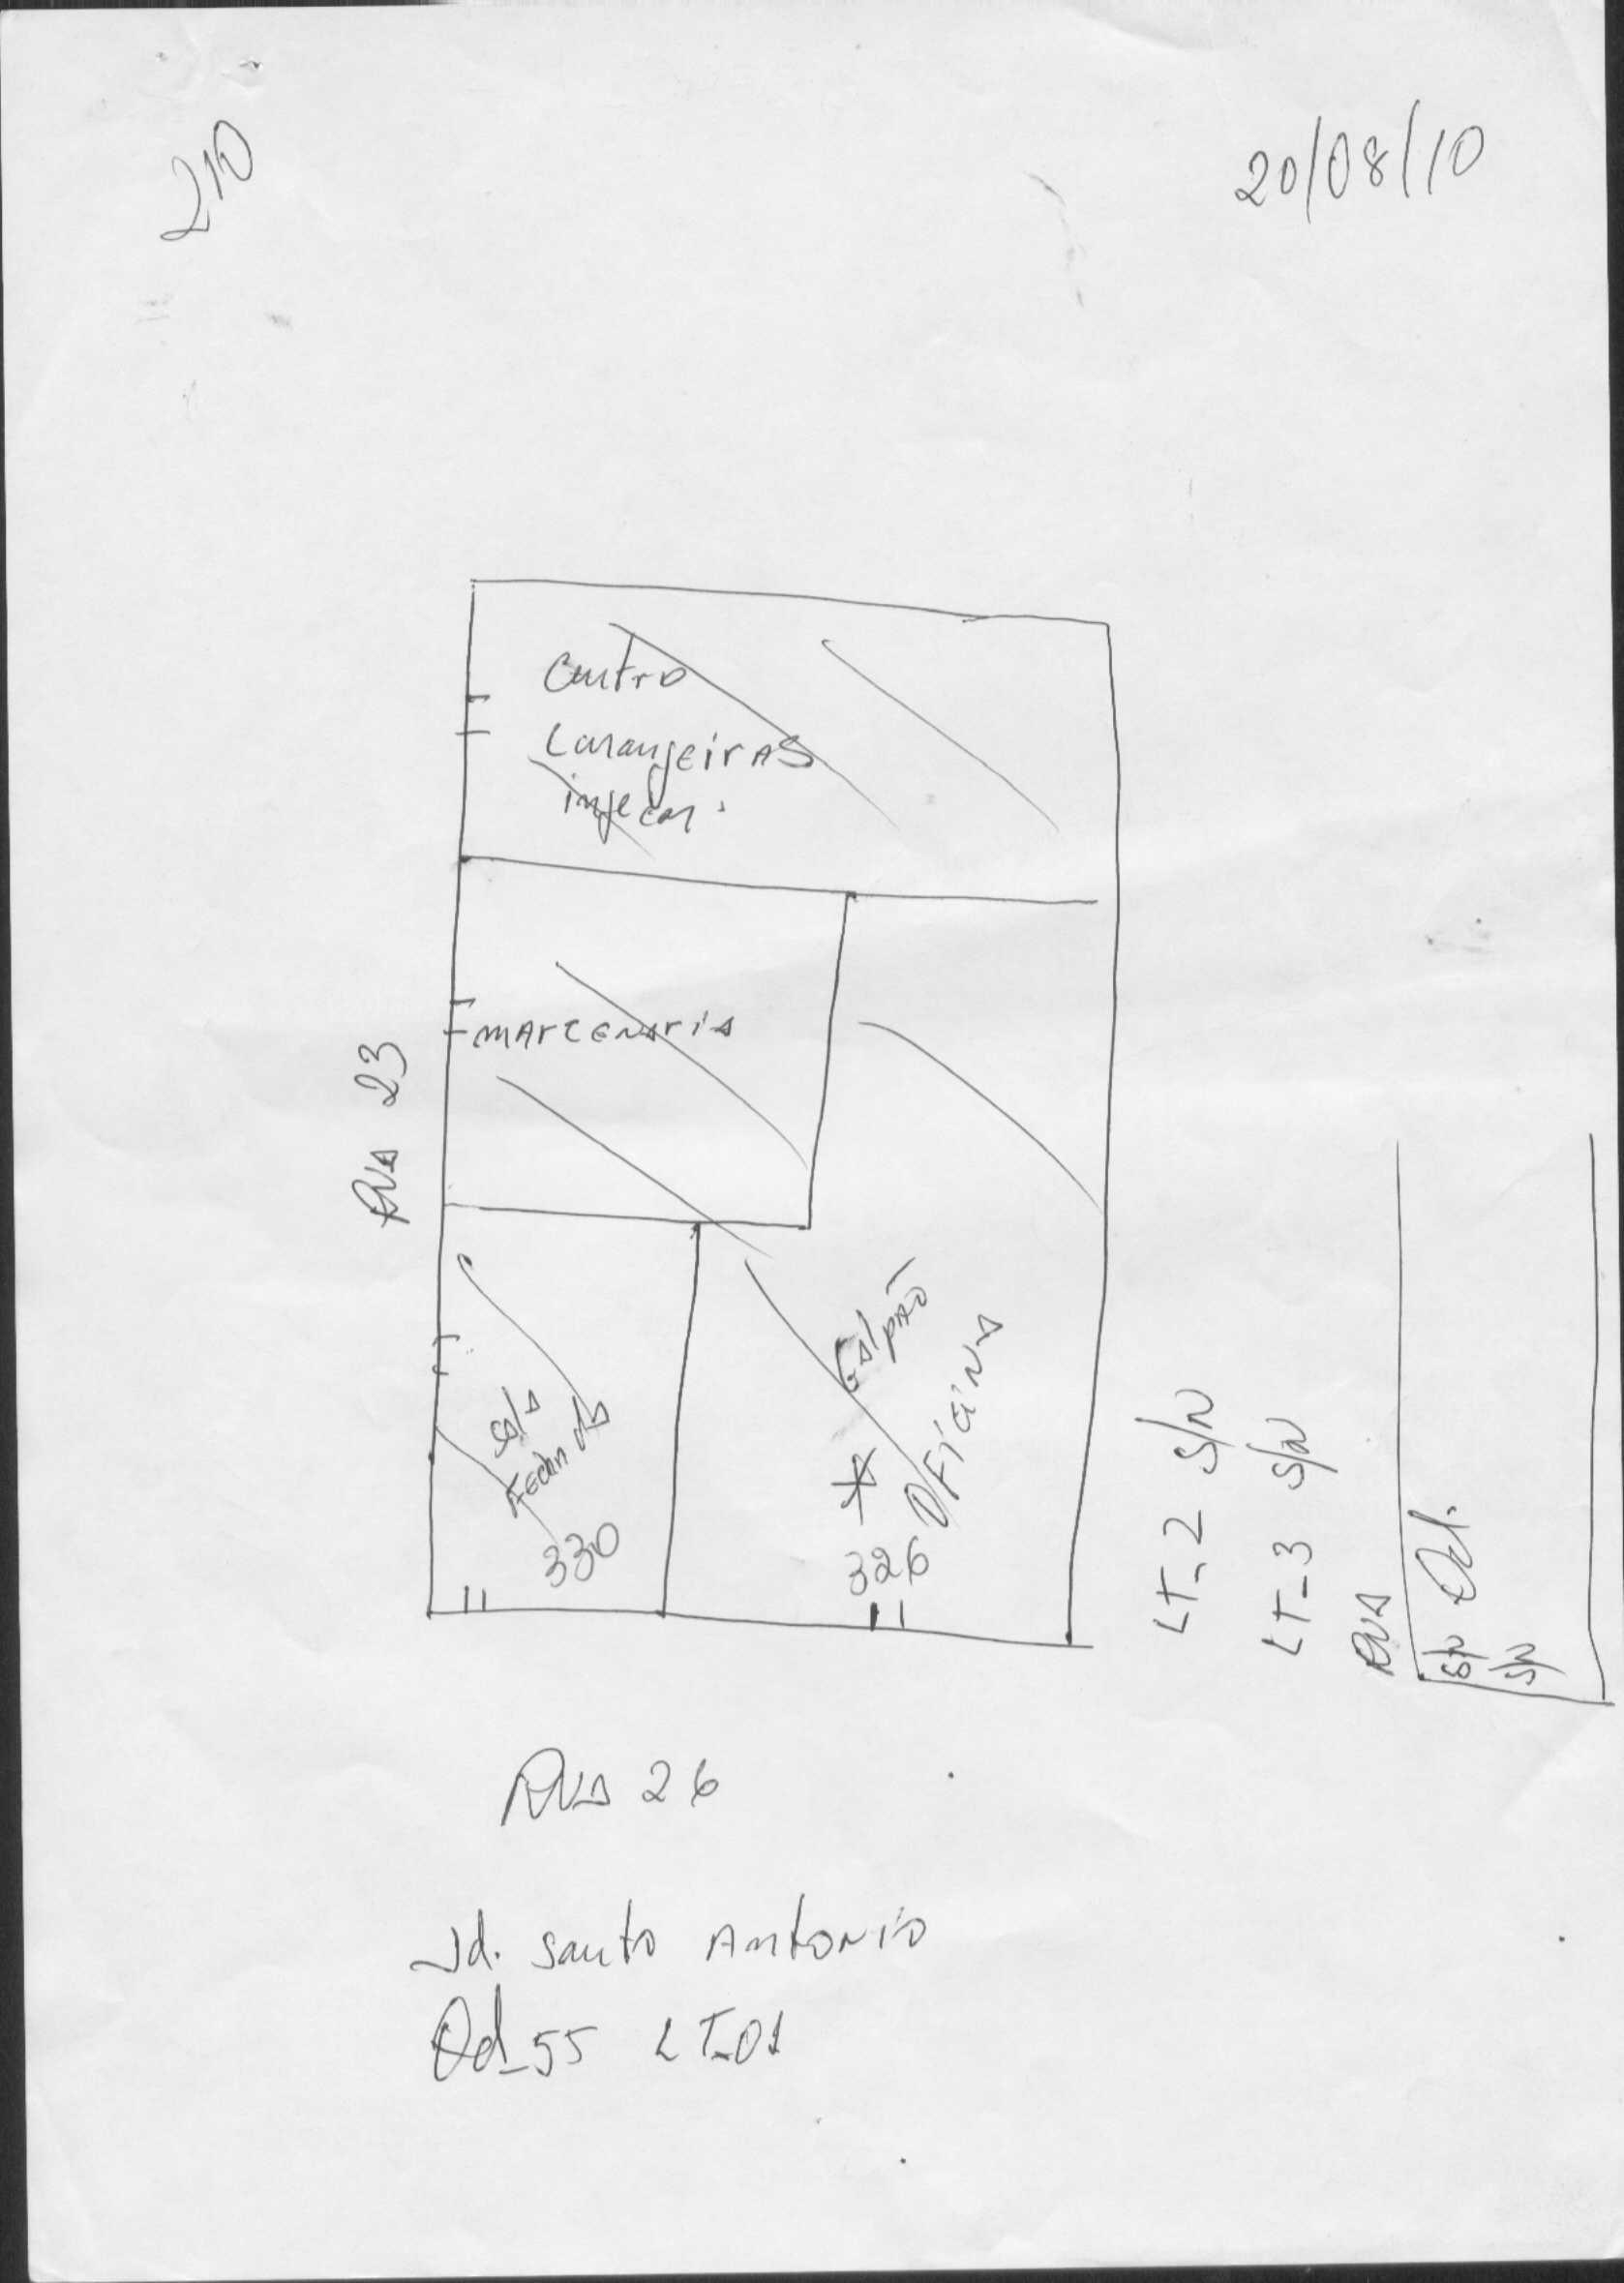 210
20/08/10
Centro
Laranjeiras
injecar.
marcenaria
RUA 23
sala
Fechada
330
Galpão
OFicina
326
LT-2 S/N
LT-3 S/N
RUA
Qd.
S/N
S/N
RUA 26
Jd. Santo Antonio
Qd-55 LT-01